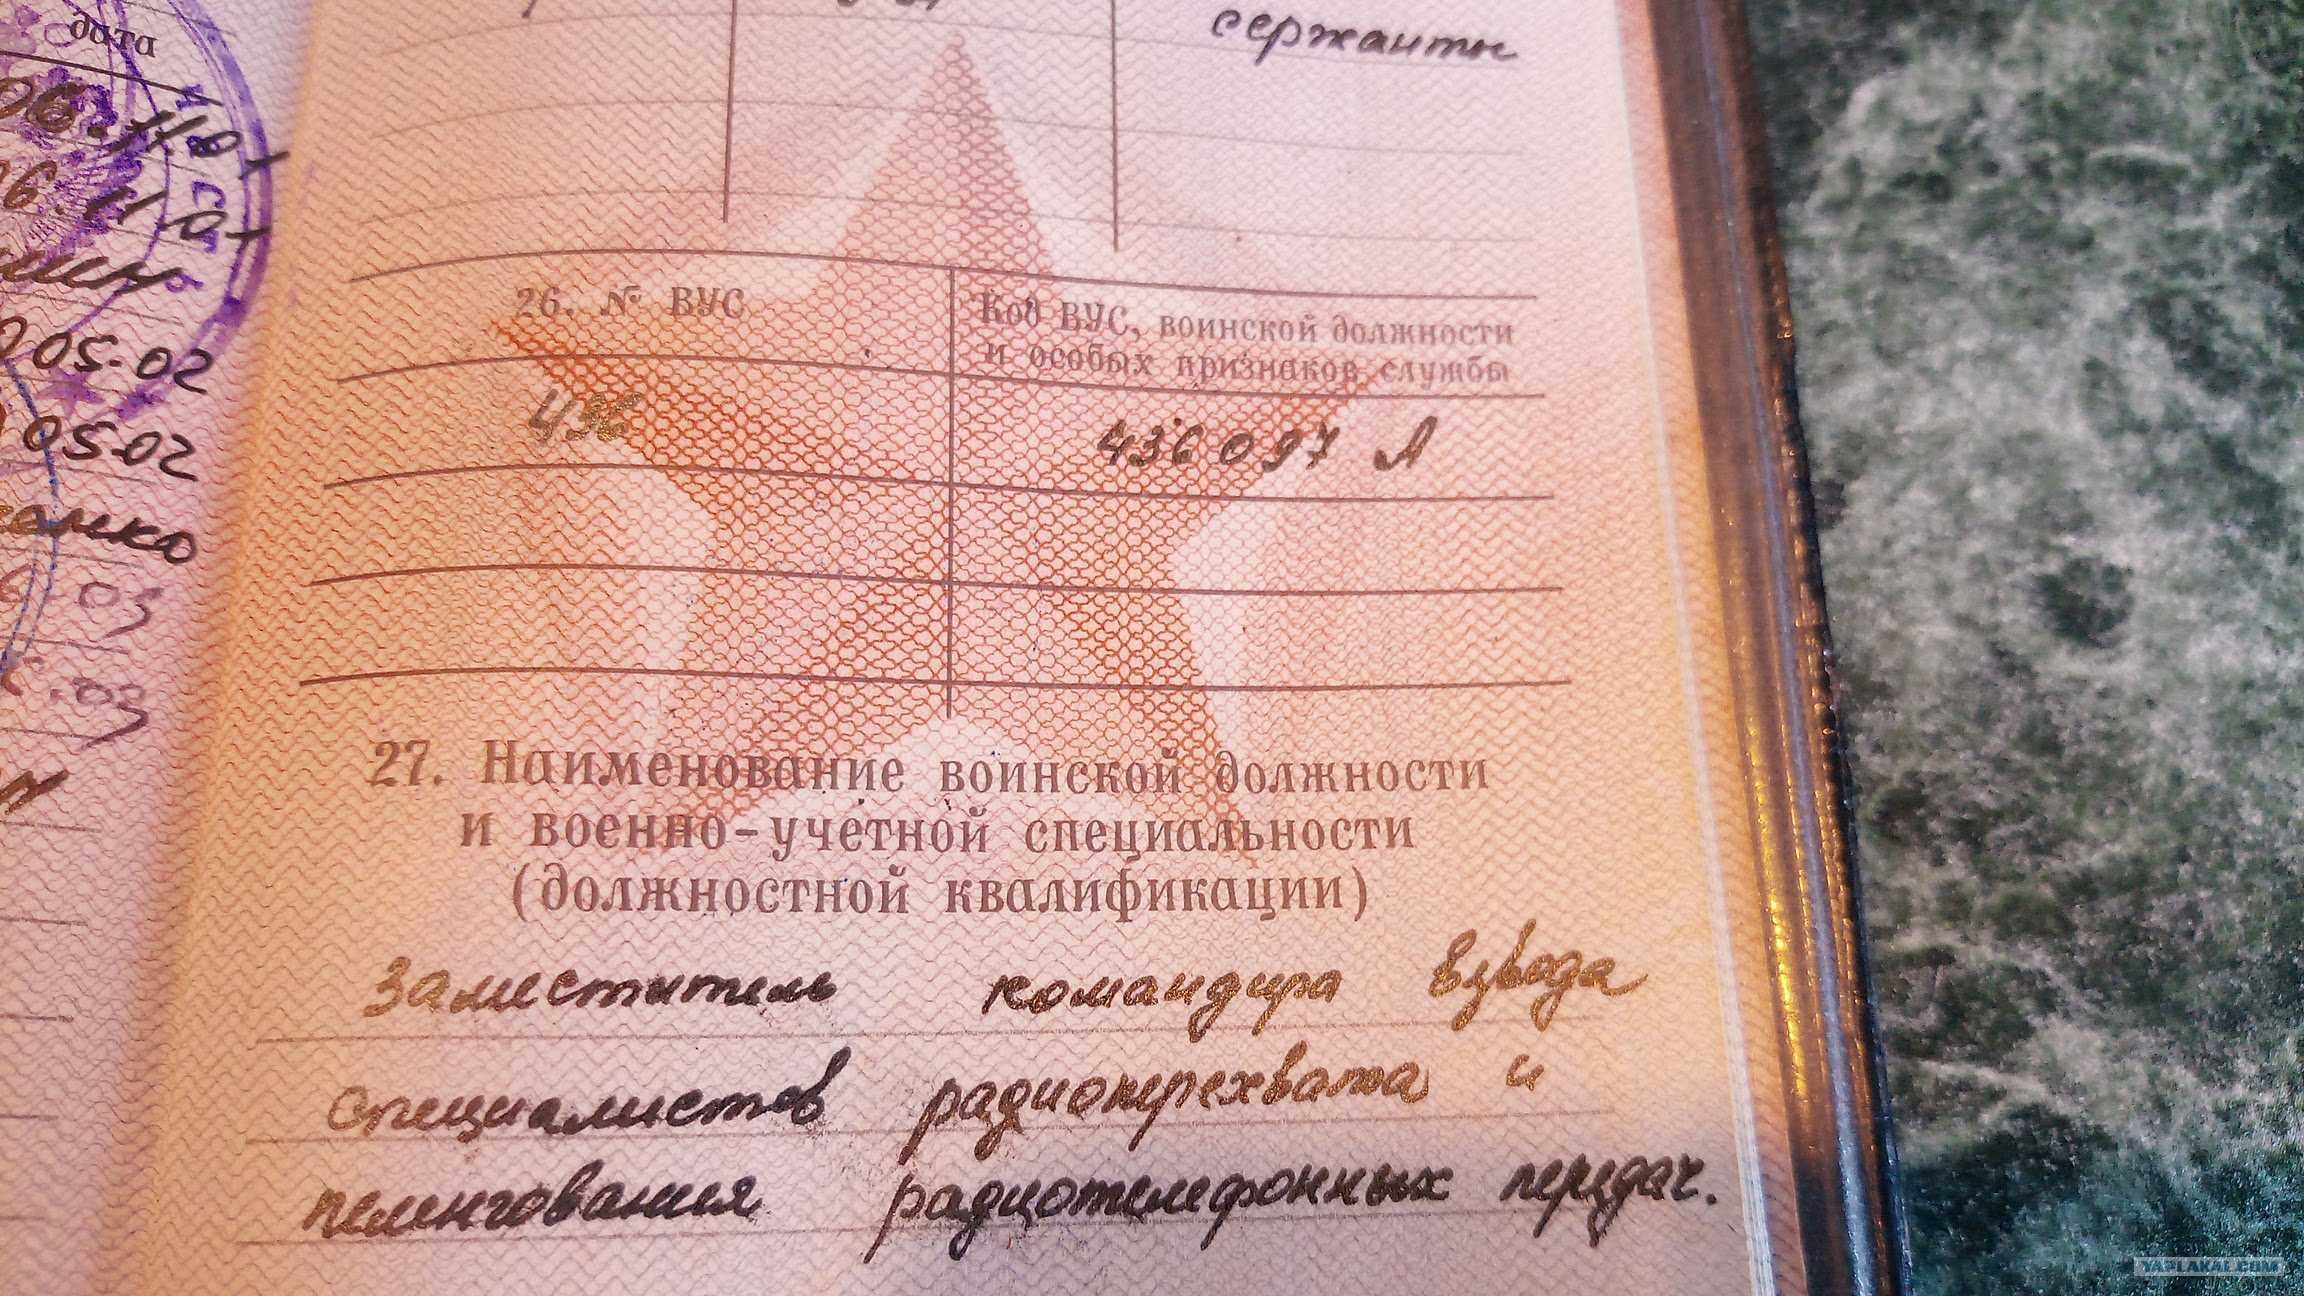 дата
сержанты
26. № ВУС
Код ВУС, воинской должности
и особых признаков службы
436
436 097 А
05-02
05-02
03
03
27. Наименование воинской должности
и военно-учетной специальности
(должностной квалификации)
Заместитель командира взвода
специалистов радиоперехвата и
пеленгования радиотелефонных передач.
YAPLAKAL.COM